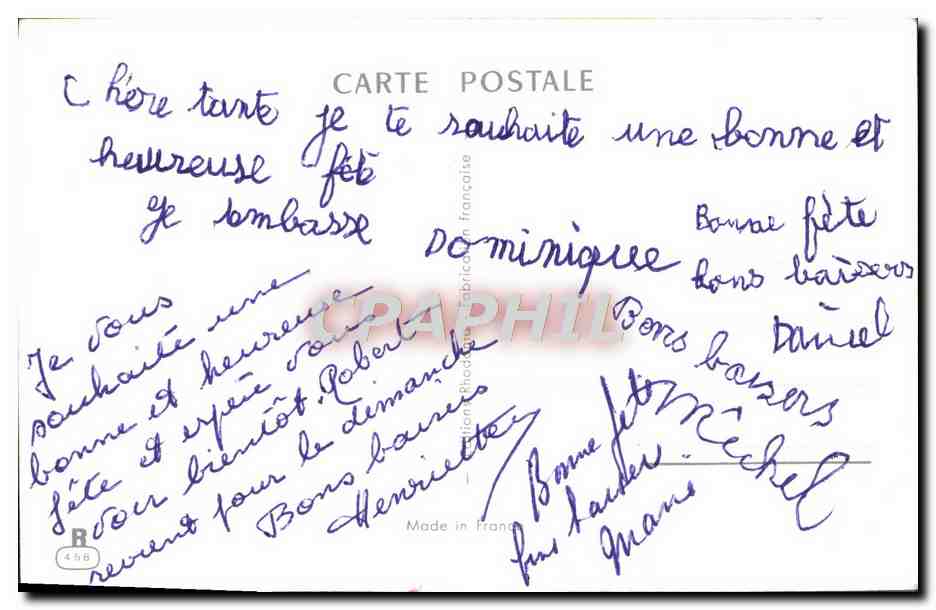 CARTE POSTALE
Chère tante je te souhaite une bonne et
heureuse fête
Je embasse Dominique
Bonne fête
bons baisers
Daniel
Bons baisers
Michel
Je vous
souhaite une
bonne et heureuse
fête et espère vous
voir bientôt. Robert
revient pour le dimanche
Bons baisers
Henriette
Bonne fête
baiser
Editions Rhodania Fabrication française
CPAPHIL
Made in France
R
458